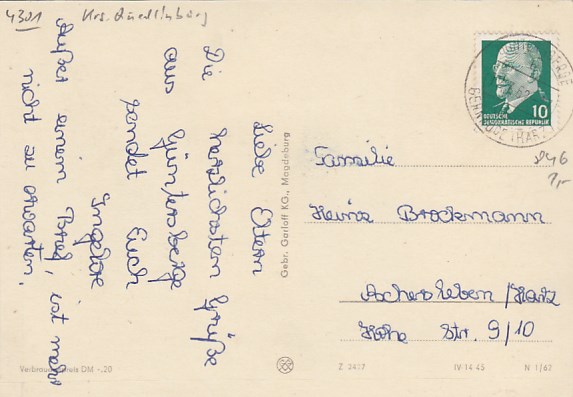 4301 Krs. Quedlinburg
Liebe Eltern
Die herzlichsten Grüße
aus Güntersberge
sendet Euch
Ingelore
Außer einem Brief, ist mehr
nicht zu erwarten.
Gebr. Garloff KG., Magdeburg
10
DEUTSCHE
DEMOKRATISCHE REPUBLIK
946
Familie
Heinz Brockmann
Aschersleben/Harz
Hohe Str. 9/10
Verbraucherpreis DM -.20
IV 14 45
N 1/62